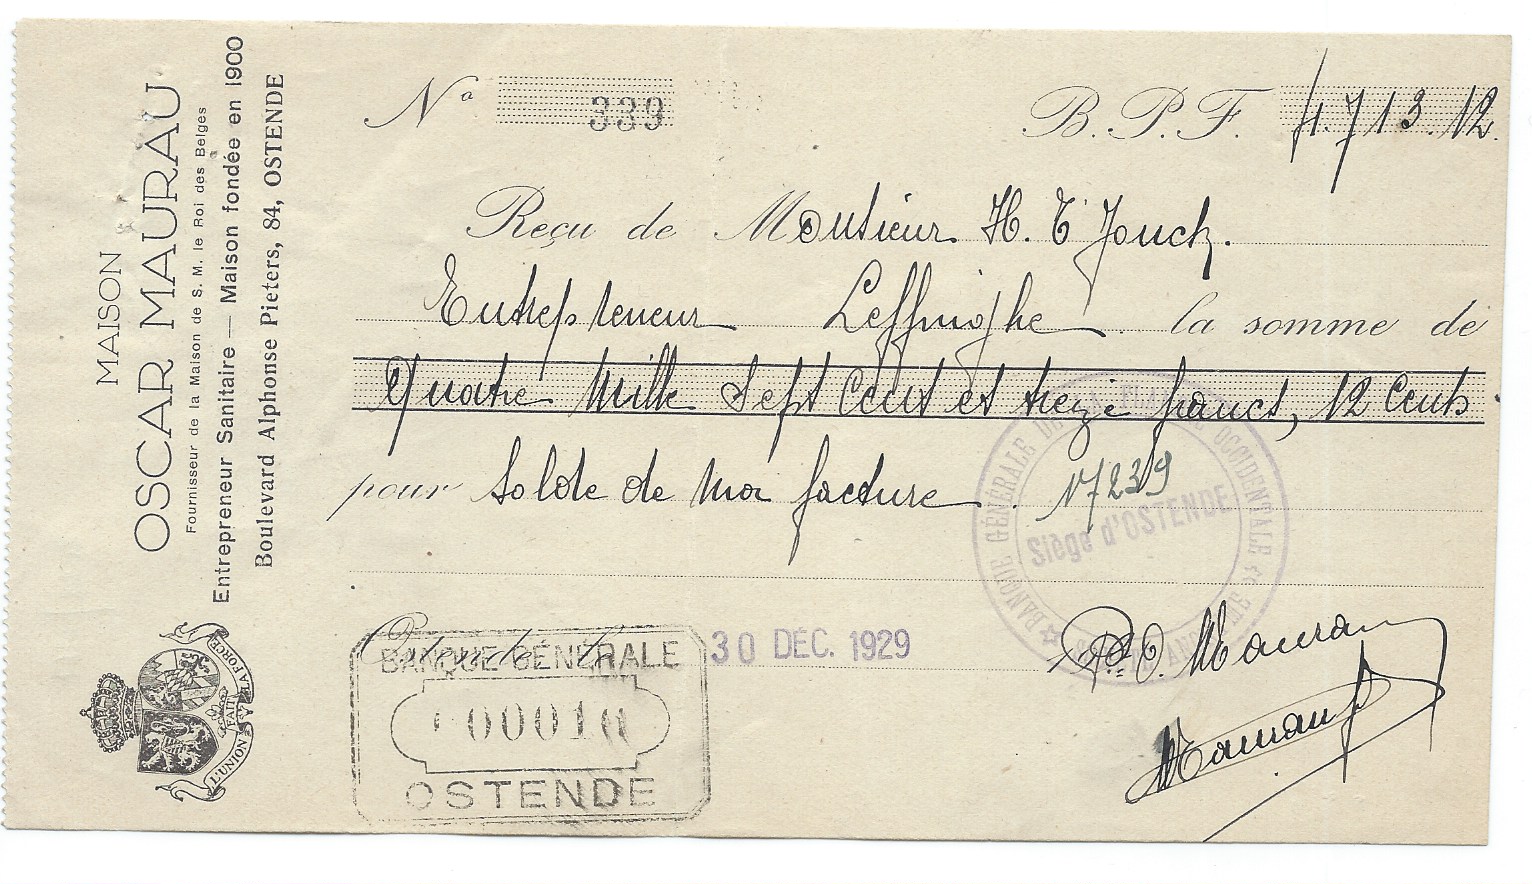 MAISON
OSCAR MAURAU
Fournisseur de la Maison de S. M. le Roi des Belges
Entrepreneur Sanitaire — Maison fondée en 1900
Boulevard Alphonse Pieters, 84, OSTENDE
L'UNION FAIT LA FORCE
No 339
B. P. F. 4.713.12.
Reçu de Monsieur H. T'Jonck.
Entrepreneur Leffinghe la somme de
Quatre Mille Sept Cent et treize francs, 12 Cents
pour Solde de ma facture.
BANQUE GÉNÉRALE DE LA FLANDRE OCCIDENTALE
Siège d'OSTENDE
Ostende le 30 DÉC. 1929
BANQUE GÉNÉRALE
OSTENDE
O. Maurau
Maurau